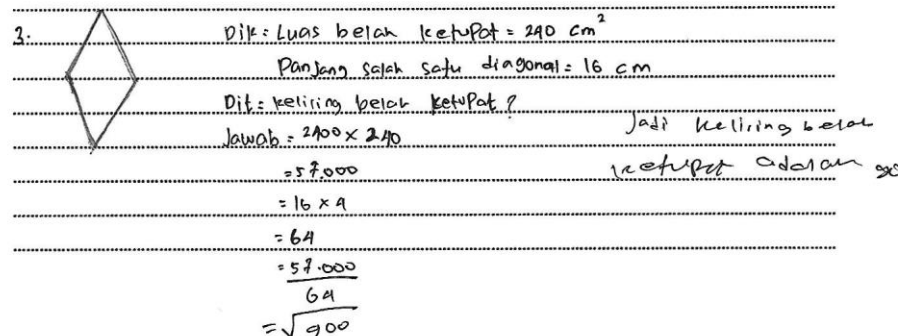 3.
Dik = Luas belah ketupat = 240 cm²
Panjang salah satu diagonal = 16 cm
Dit = keliring belah ketupat ?
Jawab = 2400 × 240
= 57.000
= 16 × 4
= 64
= 57.000
64
= √900
Jadi keliring belah
ketupat adalah